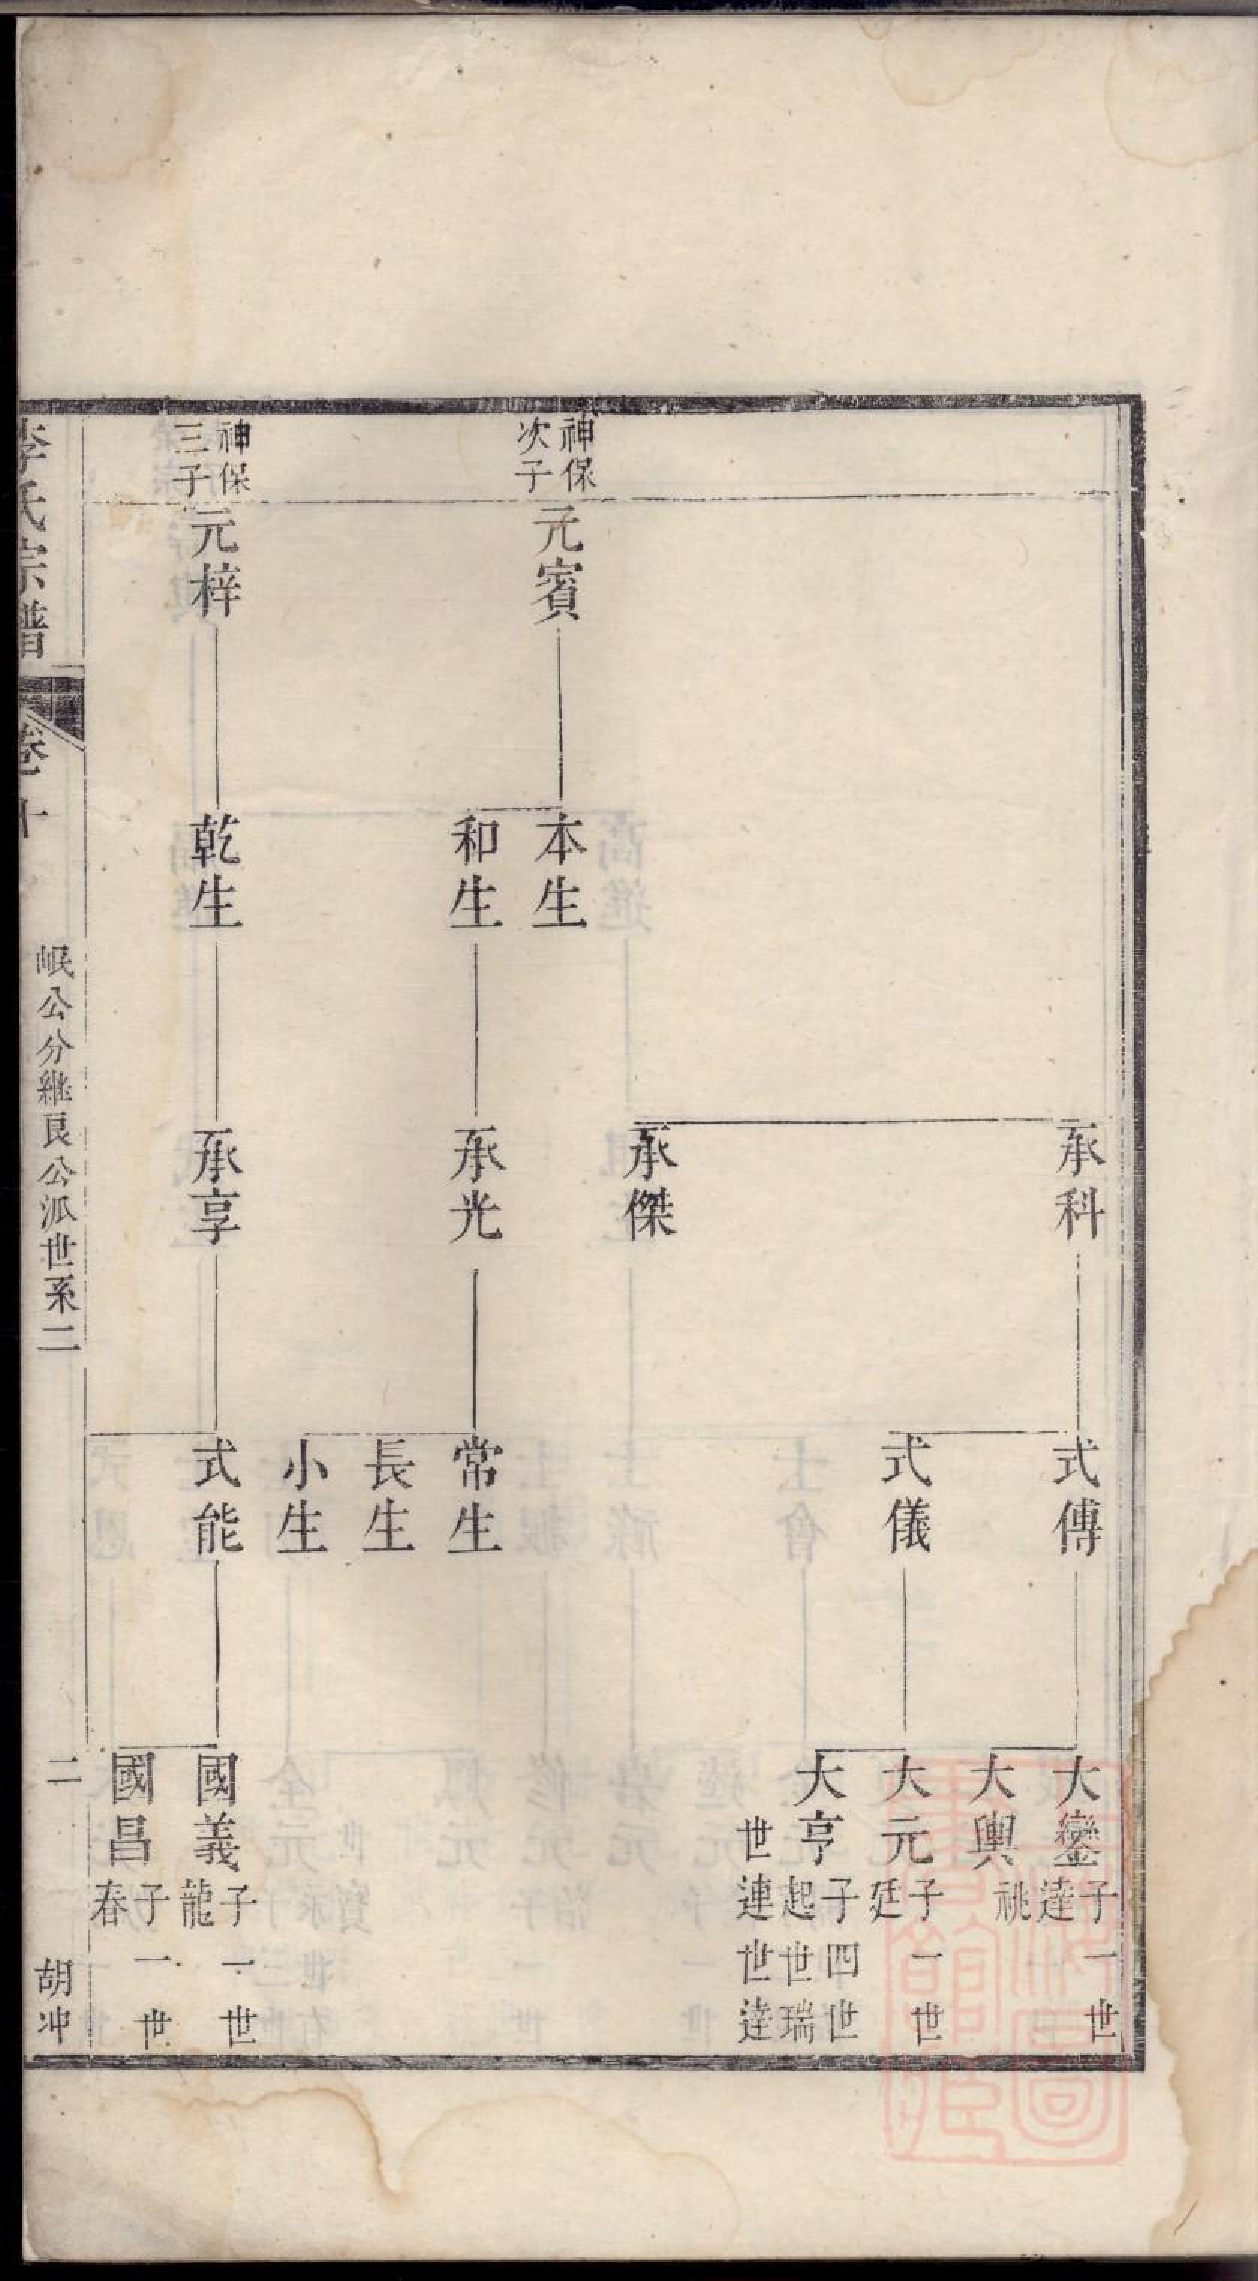 承科
式傅
大鑾
子一世
達
大輿
祧
式儀
大元
子一世
廷
大亨
子四世
起世瑞
世連世達
承傑
神保
次子
元賓
本生
和生
承光
常生
長生
小生
神保
三子
元梓
乾生
承享
式能
國義
子一世
龍
國昌
子一世
春
李氏宗譜
卷十
岷公分繼良公派世系二
二
胡冲